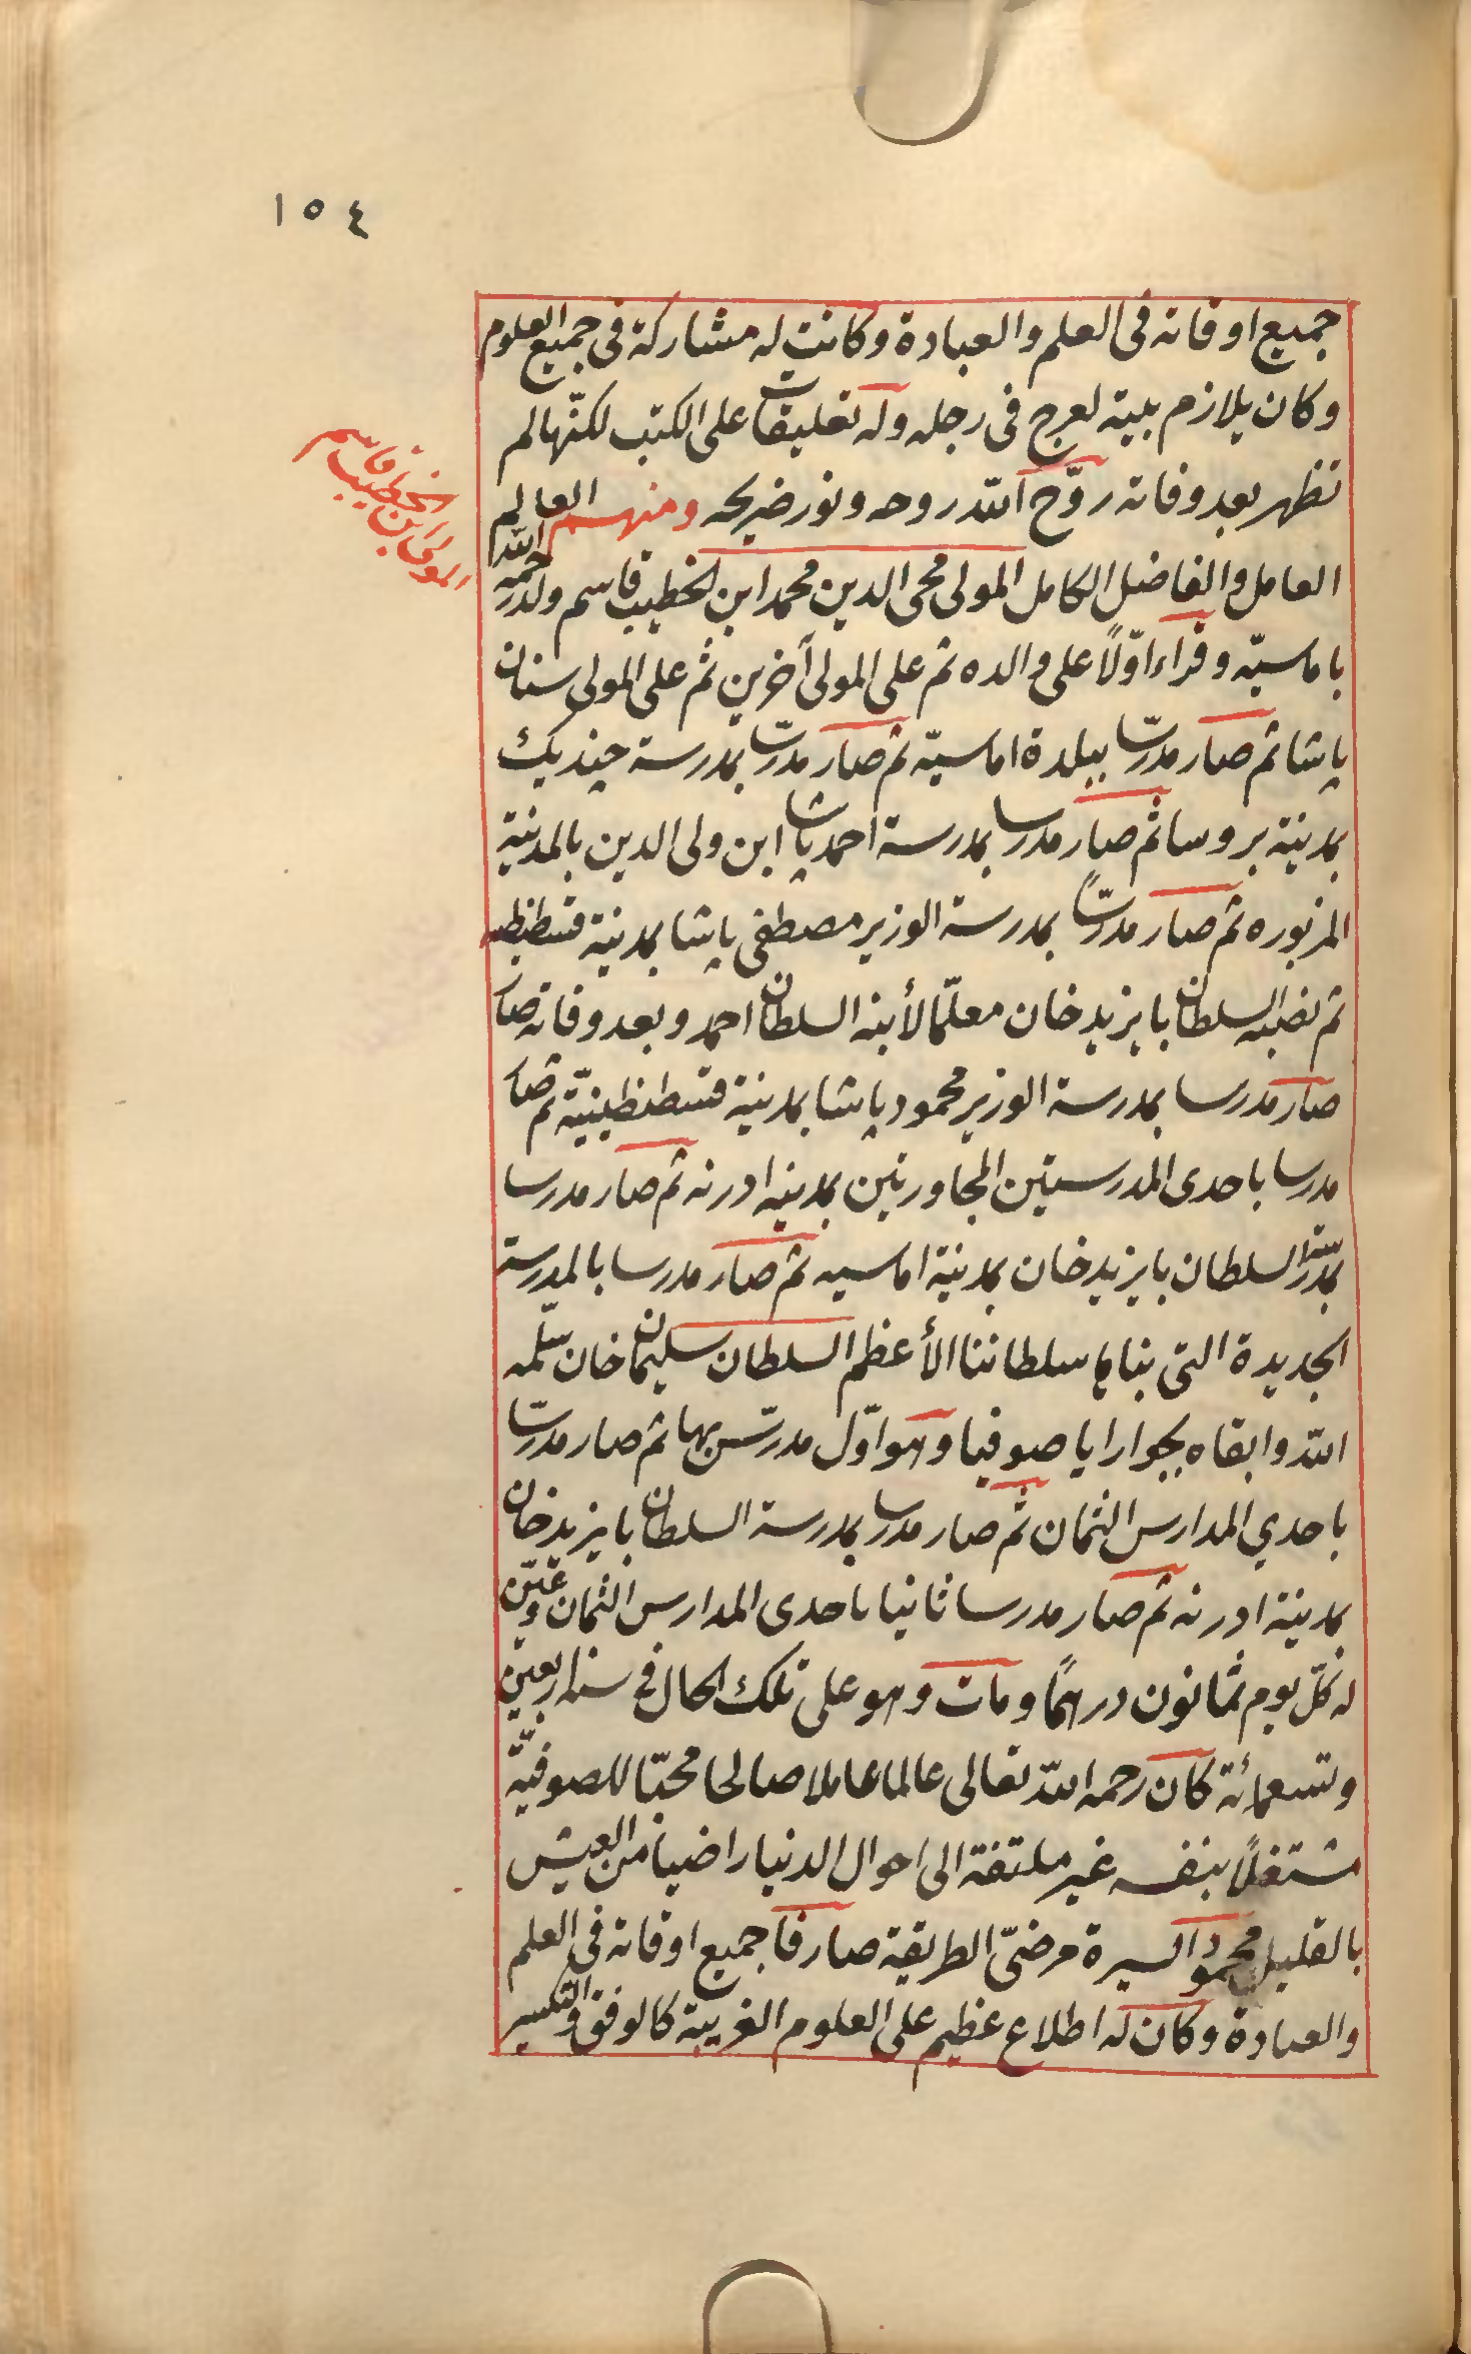 ١٥٤
جميع اوقاته فى العلم والعبادة وكانت له مشاركة فى جميع العلوم
وكان يلازم بيته لعرج فى رجله وله تعليقات على الكتب لكنّها لم
تظهر بعد وفاته روّح الله روحه ونور ضريحه ومنهم العالم
العامل والفاضل الكامل المولى محى الدين محمد ابن الخطيب قاسم ولد رحمه الله
المولى ابن الخطيب قاسم
باماسيّه وقراء اوّلاً على والده ثم على المولى آخرين ثم على المولى سنان
پاشا ثم صار مدرّسا ببلدة اماسيّه ثم صار مدرّسا بمدرسة چنديك
بمدينة بروسا ثم صار مدرسا بمدرسة احمد پاشا ابن ولى الدين بالمدينة
المزبوره ثم صار مدرّساً بمدرسة الوزير مصطفى پاشا بمدينة قسطنطنيه
ثم نصبه السلطان بايزيد خان معلّما لأبنه السلطان احمد وبعد وفاته صار
صار مدرسا بمدرسة الوزير محمود پاشا بمدينة قسطنطينيّة ثم صار
مدرسا باحدى المدرستين المجاورتين بمدينه ادرنه ثم صار مدرسا
بمدرسة السلطان بايزيد خان بمدينة اماسيه ثم صار مدرسا بالمدرسة
الجديدة التى بناها سلطاننا الأعظم السلطان سليمان خان سلّمه
الله وابقاه بجوار ايا صوفيا وهو اوّل مدرّس بها ثم صار مدرّسا
باحدي المدارس الثمان ثم صار مدرسا بمدرسة السلطان بايزيد خان
بمدينة ادرنه ثم صار مدرسا ثانيا باحدى المدارس الثمان وعيّن
له كلّ يوم ثمانون درهمًا ومات وهو على تلك الحال فى سنة اربعين
وتسعمائة كان رحمه الله تعالى عالما عاملا صالحا محبّا للصوفيّة
مشتغلاً بنفسه غير ملتفة الى احوال الدنيا راضيا من العيش
بالقليل محمود السيرة مرضىّ الطريقة صارفا جميع اوقاته فى العلم
والعبادة وكان له اطلاع عظيم على العلوم الغريبة كالوفق والتكسير